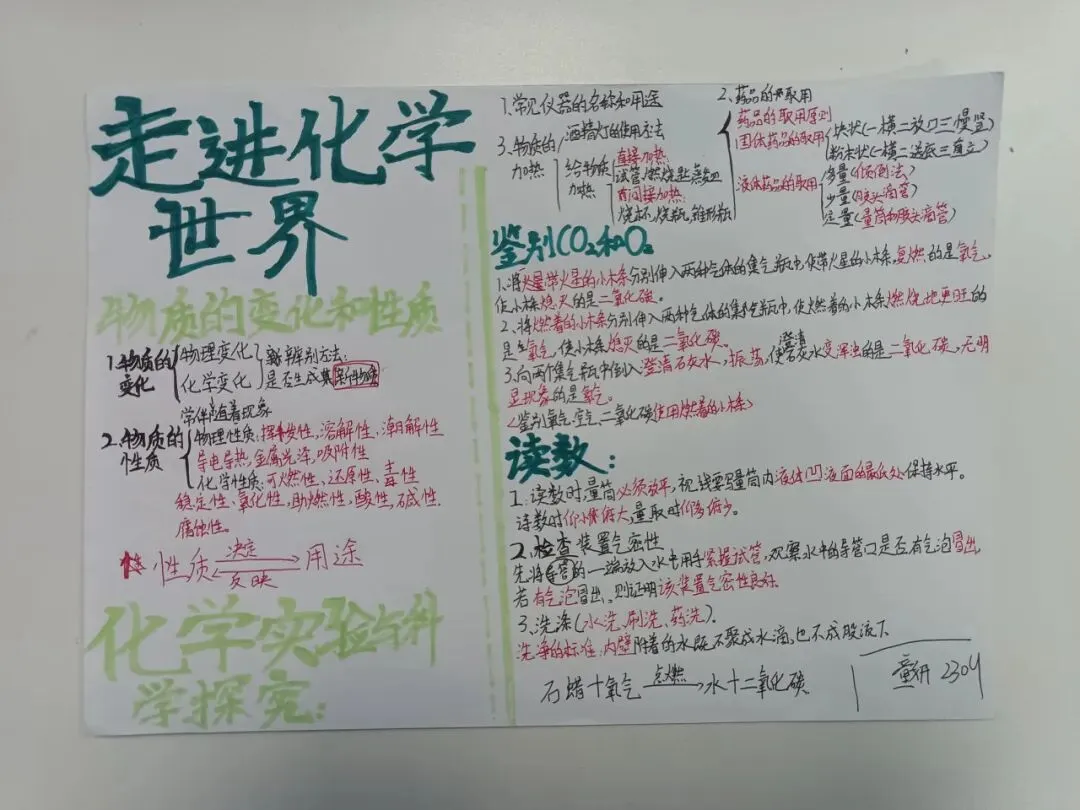 走进化学
世界
物质的变化和性质
1.物质的变化
物理变化
化学变化
辨别方法:
是否生成其
常伴随着现象
2.物质的性质
物理性质:挥发性,溶解性,潮解性
导电导热,金属光泽,吸附性
化学性质:可燃性,还原性,毒性
稳定性、氧化性,助燃性,酸性,碱性.
腐蚀性。
性质 决定 用途
反映
化学实验与科
学探究:
1.常见仪器的名称和用途
2.药品的取用
药品的取用原则
固体药品的取用
块状(一横二放口三慢竖)
粉末状(一横二送底三直立)
液体药品的取用
多量(倾倒法)
少量(胶头滴管)
定量(量筒和胶头滴管)
3.物质的加热
酒精灯的使用方法
给物质加热
直接加热:
试管,燃烧匙,蒸发皿
间接加热:
烧杯,烧瓶,锥形瓶
鉴别CO₂和O₂
1.将带火星的小木条分别伸入两种气体的集气瓶中,使带火星的小木条复燃的是氧气,
使小木条熄灭的是二氧化碳。
2.将燃着的小木条分别伸入两种气体的集气瓶中,使燃着的小木条燃烧地更旺的
是氧气,使小木条熄灭的是二氧化碳。
3.向两个集气瓶中倒入澄清石灰水,振荡,使澄清石灰水变浑浊的是二氧化碳,无明
显现象的是氧气。
<鉴别氧气.空气、二氧化碳使用燃着的小木条>
读数:
1.读数时,量筒必须放平,视线要与量筒内液体凹液面的最低处保持水平。
读数时仰小俯大,量取时仰多俯少。
2.检查装置气密性
先将导管的一端放入水中用手紧握试管,观察水中的导管口是否有气泡冒出
若有气泡冒出,则证明该装置气密性良好.
3.洗涤(水洗.刷洗、药洗).
洗净的标准:内壁附着的水既不聚成水滴,也不成股流下
石蜡+氧气 点燃 水+二氧化碳
2304